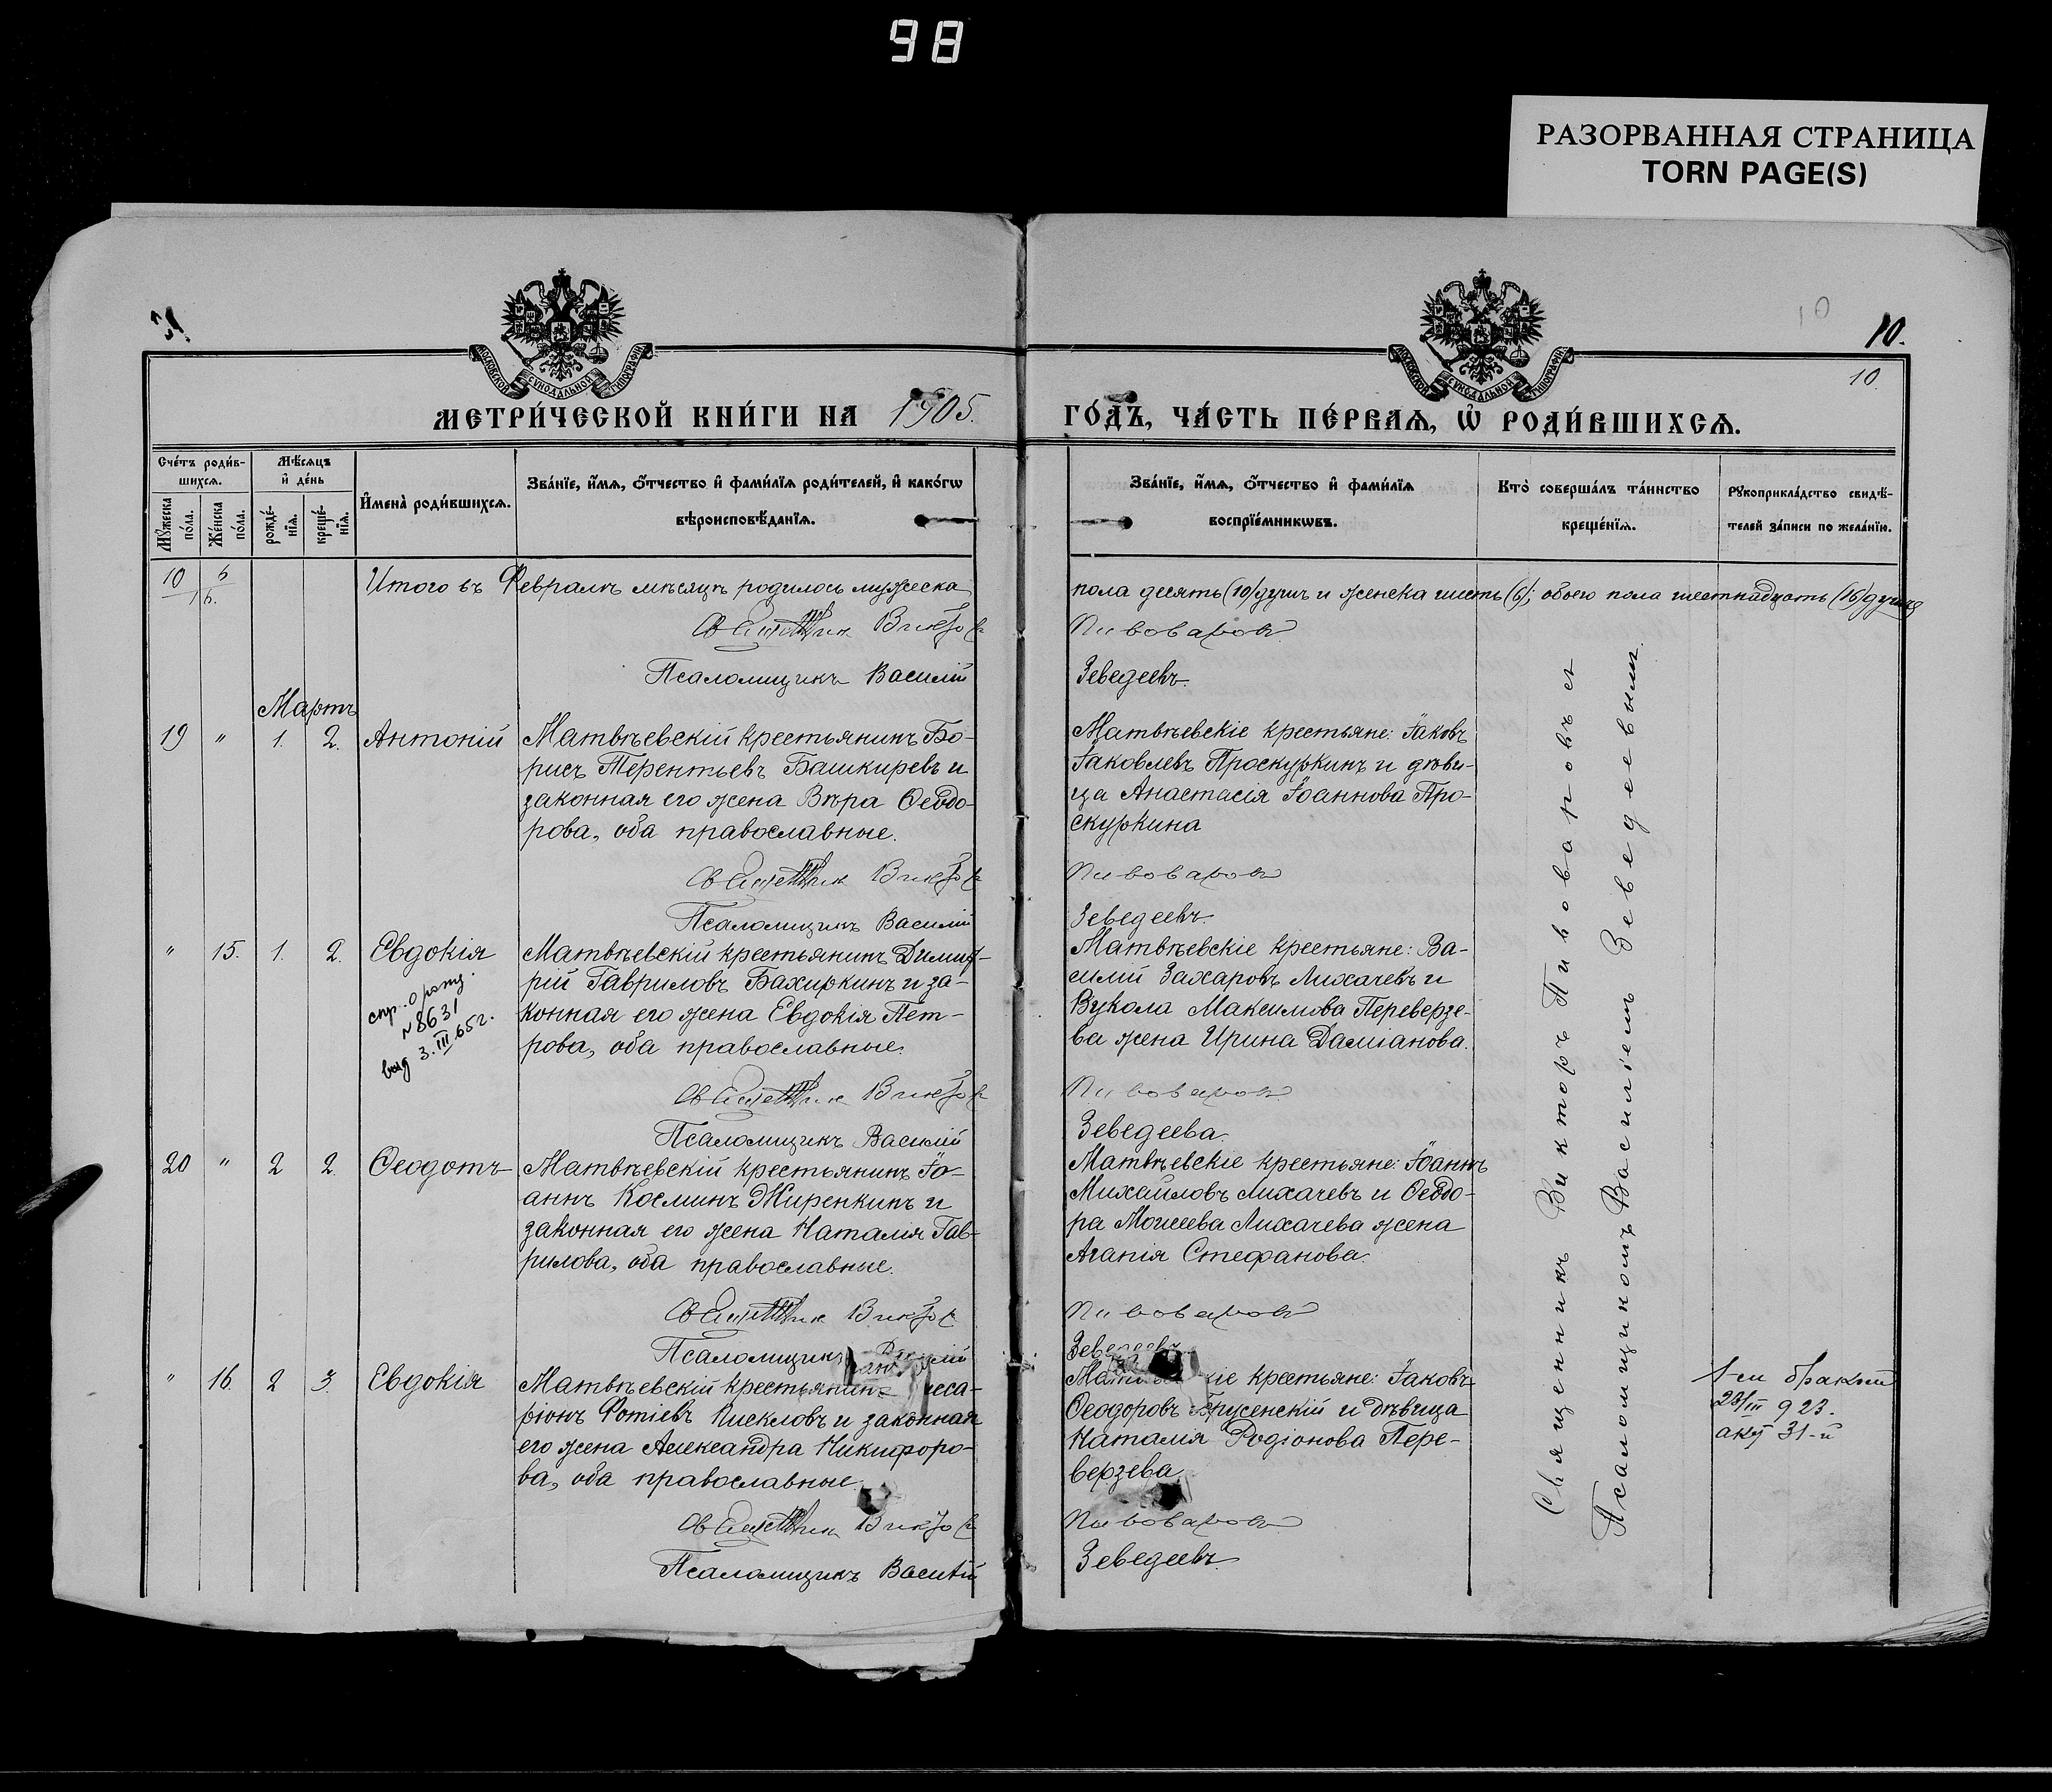 98
РАЗОРВАННАЯ СТРАНИЦА
TORN PAGE(S)
10
10.
10.
МОСКОВСКОЙ СѴНОДАЛЬНОЙ ТИПОГРАФІИ
МОСКОВСКОЙ СѴНОДАЛЬНОЙ ТИПОГРАФІИ
МЕТРИ́ЧЕСКОЙ КНИ́ГИ НА 1905.
ГО́ДЪ, ЧА́СТЬ ПЕ́РВАѦ, Ѡ҆ РОДИ́ВШИХСѦ.
Сче́тъ роди́в-
шихсѧ.
Мꙋ́жеска
по́ла.
Же́нска
по́ла.
Мѣ́сѧцъ
и҆ де́нь
рожде́-
нїѧ.
креще́-
нїѧ.
И҆мена̀ роди́вшихсѧ.
Зва́нїе, и҆́мѧ, ѻ҆́тчество и҆ фами́лїѧ роди́телей, и҆ како́гѡ
вѣроисповѣ́данїѧ.
Зва́нїе, и҆́мѧ, ѻ҆́тчество и҆ фами́лїѧ
воспрїе́мникѡвъ.
Кто̀ соверша́лъ та́инство
креще́нїѧ.
Рꙋкоприкла́дство свидѣ́-
телей за́писи по жела́нїю.
10 6
16.
Итого въ Февралѣ мѣсяцѣ родилось мужеска
пола десять (10) душъ и женска шесть (6); обоего пола шестнадцать (16) душъ
Священник Виктор
Пивоваров
Псаломщикъ Василій
Зеведеевъ.
Мартъ
19 " 1. 2. Антоній
Матвѣевскій крестьянинъ Бо-
рисъ Терентьевъ Башкиревъ и
законная его жена Вѣра Ѳеодо-
рова, оба православные.
Матвѣевскіе крестьяне: Іаковъ
Іаковлевъ Проскуркинъ и дѣви-
ца Анастасія Іоаннова Про-
скуркина
Священник Виктор
Пивоваров
Псаломщикъ Василій
Зеведеевъ.
" 15. 1. 2. Евдокія
спр. о рожд.
№8631
выд 3.III.65г.
Матвѣевскій крестьянинъ Димит-
рій Гавриловъ Бахиркинъ и за-
конная его жена Евдокія Пет-
рова, оба православные.
Матвѣевскіе крестьяне: Ва-
силий Захаровъ Лихачевъ и
Вукола Максимова Переверзе-
ва жена Ирина Даміанова.
Священник Виктор
Пивоваров
Псаломщикъ Василій
Зеведеева.
20 " 2 2. Ѳеодотъ
Матвѣевскій крестьянинъ Іо-
аннъ Косминъ Жиренкинъ и
законная его жена Наталія Гав-
рилова, оба православные.
Матвѣевскіе крестьяне: Іоаннъ
Михайловъ Лихачевъ и Ѳеодо-
ра Моисеева Лихачева жена
Агапія Стефанова.
Священник Виктор
Пивоваров
Псаломщикъ Василій
Зеведеевъ.
" 16. 2 3. Евдокія
Матвѣевскій крестьянинъ
ріонъ Фотіевъ Пиекловъ и законная
его жена Александра Никифоро-
ва, оба православные.
Матвѣевскіе крестьяне: Іаковъ
Ѳеодоровъ и дѣвица
Наталія Родіонова Пере-
верзева.
1-м браком
23/III 923.
акт 31-й
Священник Виктор
Пивоваров
Псаломщикъ Василій
Зеведеевъ.
Священникъ Викторъ Пивоваровъ съ
Псаломщикомъ Василіемъ Зеведеевымъ.